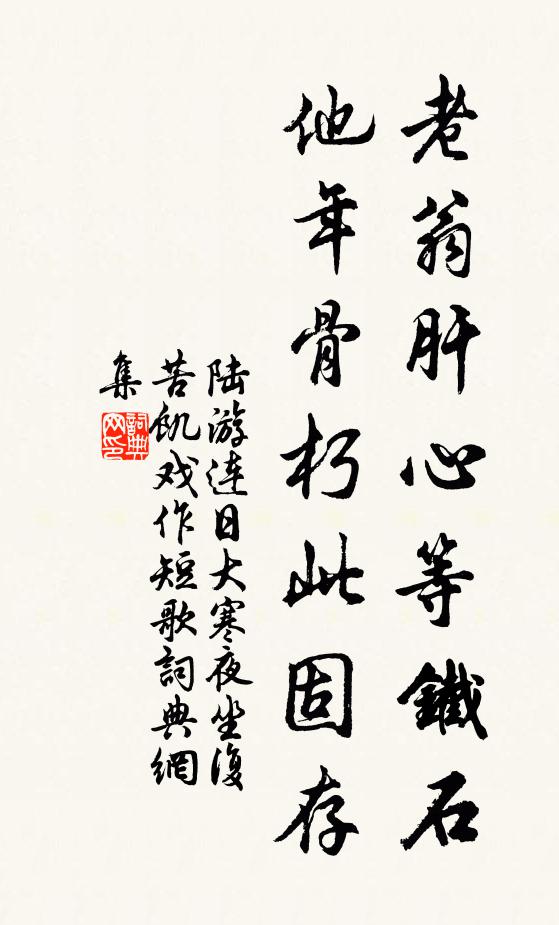 老翁肝心等鐵石
他年骨朽此固存
陆游连日大寒夜坐復
苦飢戏作短歌詞典網
集
詞典
网印